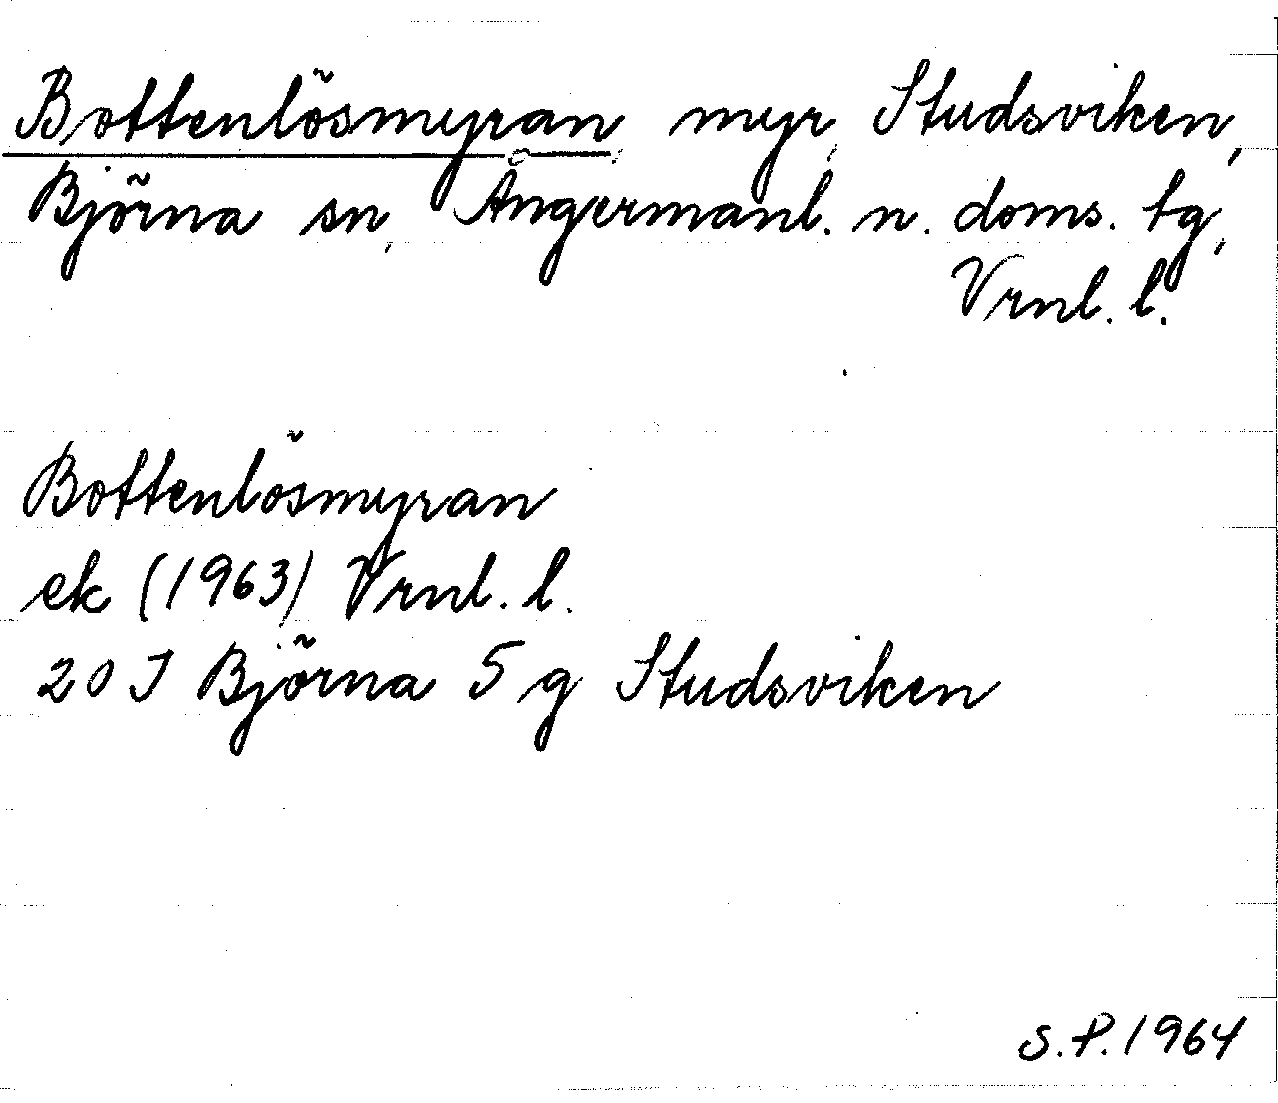 Bottenlösmyran, myr, Studsviken,
Björna sn, Ångermanl. n. doms. tg,
Vrnl. l.
Bottenlösmyran
ek (1963) Vrnl. l.
20 J Björna 5 g Studsviken
S.P. 1964